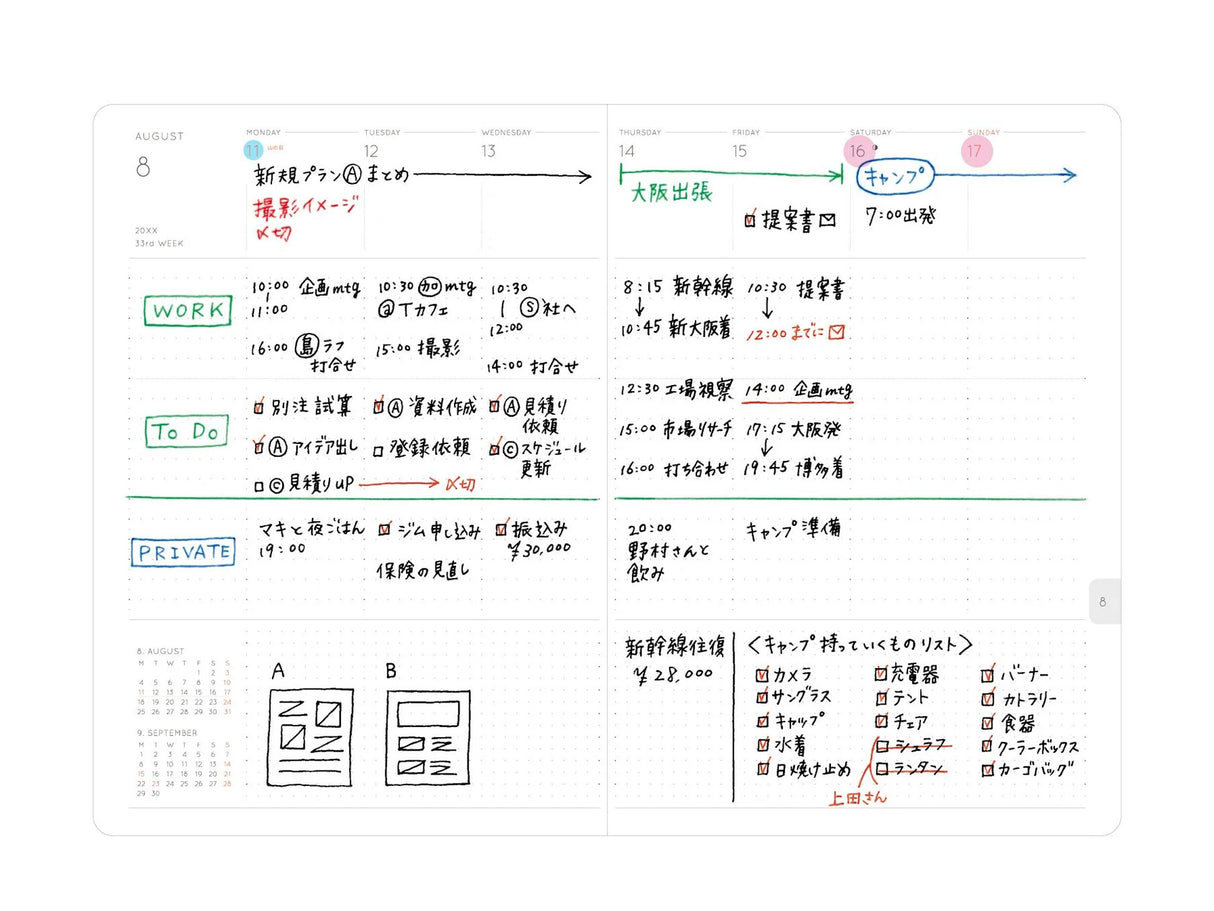 AUGUST
8
20XX
33rd WEEK
MONDAY
11 山の日
TUESDAY
12
WEDNESDAY
13
新規プランⒶまとめ
撮影イメージ
〆切
WORK
10:00 企画mtg
11:00
16:00 島ラフ
打合せ
10:30 加mtg
@Tカフェ
15:00 撮影
10:30
Ⓢ社へ
12:00
14:00 打合せ
To Do
別注試算
Ⓐアイデア出し
Ⓒ見積りUP → 〆切
Ⓐ資料作成
登録依頼
Ⓐ見積り
依頼
Ⓒスケジュール
更新
PRIVATE
マキと夜ごはん
19:00
ジム申し込み
保険の見直し
振込み
¥30,000
8. AUGUST
M T W T F S S
1 2 3
4 5 6 7 8 9 10
11 12 13 14 15 16 17
18 19 20 21 22 23 24
25 26 27 28 29 30 31
9. SEPTEMBER
M T W T F S S
1 2 3 4 5 6 7
8 9 10 11 12 13 14
15 16 17 18 19 20 21
22 23 24 25 26 27 28
29 30
A
B
THURSDAY
14
FRIDAY
15
SATURDAY
16
SUNDAY
17
大阪出張
提案書
キャンプ
7:00出発
8:15 新幹線
↓
10:45 新大阪着
12:30 工場視察
15:00 市場リサーチ
16:00 打ち合わせ
10:30 提案書
↓
12:00までに
14:00 企画mtg
17:15 大阪発
↓
19:45 博多着
20:00
野村さんと
飲み
キャンプ準備
新幹線往復
¥28,000
〈キャンプ持っていくものリスト〉
カメラ
サングラス
キャップ
水着
日焼け止め
充電器
テント
チェア
シュラフ
ランタン
上田さん
バーナー
カトラリー
食器
クーラーボックス
カーゴバッグ
8